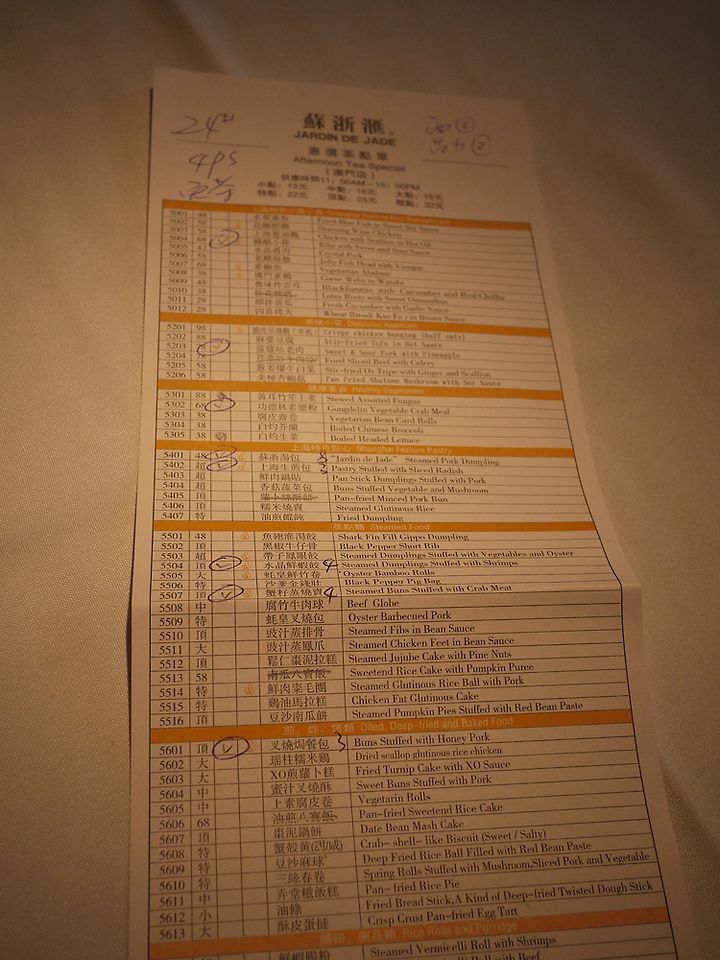 24
蘇浙滙
JARDIN DE JADE
4PS
惠選茶點單
Afternoon Tea Special
(澳門店)
供應時間11:00AM-15:00PM
小點:13元 中點:16元 大點:18元
特點:22元 頂點:25元 超點:32元
5001 48 Fried Blue Fish in Sweet Soy Sauce
5002 58 Shaoxing Wine Chicken
5003 58 上海葱油鷄 Chicken with Scallion in Hot Oil
5004 68 糖醋小排 Ribs with Sweet and Sour Sauce
5005 42 水晶肴肉 Crystal Pork
5006 58 老醋海蜇 Jelly Fish Head with Vinegar
5007 38 素鮑魚 Vegetarian Abalone
5008 38 Goose Webs in Wasabi
5009 48 Blackfungus with Cucumber and Red Chillis
5010 38 Lotus Roots with Sweet Osmanthus
5011 28 即拌黄瓜 Fresh Cucumber with Garlic Sauce
5012 28 四喜烤夫 Wheat Bread( Kao Fu ) in Brown Sauce
美味小菜 Delicious Appetizer
5201 98 Crispr chicken hanging (half only)
5202 88 麻婆豆腐 Stir-Fried Tofu in Hot Sauce
5203 菠蘿咕老肉 Sweet & Sour Pork with Pineapple
5204 78 Fried Sliced Beef with Celery
5205 58 葱姜爆牛白葉 Stir-fried Ox Tripe with Ginger and Scallion
5206 58 美極杏鮑菇 Pan Fried Abalone Mushroom with Soy Sauce
健康菜蔬 Healthy Vegetables
5301 88 黄耳竹笙上素 Stewed Assorted Fungus
5302 68 功德林素蟹粉 Gongdelin Vegetable Crab Meal
5303 38 腐皮齋卷 Vegetarian Bean Curd Rolls
5304 38 白灼芥蘭 Boiled Chinese Broccoli
5305 38 白灼生菜 Boiled Headed Lettuce
上海特色點心 Shanghai Feature Pastry
5401 48 蘇浙湯包 3 "Jardin de Jade" Steamed Pork Dumpling
5402 超 上海生煎包 3 Pastry Stuffed with Sliced Radish
5403 超 鮮肉鍋貼 Pan Stick Dumplings Stuffed with Pork
5404 超 香菇蔬菜包 Buns Stuffed Vegetable and Mushroom
5405 頂 蘿卜絲酥餅 Pan-fried Minced Pork Bun
5406 頂 糯米燒賣 Steamed Glutinous Rice
5407 特 油煎餛飩 Fried Dumpling
蒸點類 Steamed Food
5501 48 魚翅灌湯餃 Shark Fin Fill Gippo Dumpling
5502 頂 黑椒牛仔骨 Black Pepper Short Rib
5503 超 帶子鳳眼餃 Steamed Dumplings Stuffed with Vegetables and Oyster
5504 頂 水晶鮮蝦餃 4 Steamed Dumplings Stuffed with Shrimps
5505 大 蚝皇鮮竹卷 Oyster Bamboo Rolls
5506 特 沙姜金錢肚 Black Pepper Pig Bag
5507 頂 蟹籽蒸燒賣 4 Steamed Buns Stuffed with Crab Meat
5508 中 腐竹牛肉球 Beef Globe
5509 特 蚝皇叉燒包 Oyster Barbecued Pork
5510 頂 豉汁蒸排骨 Steamed Fibs in Bean Sauce
5511 大 豉汁蒸鳳爪 Steamed Chicken Feet in Bean Sauce
5512 頂 鬆仁棗泥拉糕 Steamed Jujube Cake with Pine Nuts
5513 58 南瓜八寶飯 Sweetend Rice Cake with Pumpkin Puree
5514 特 鮮肉菜毛團 Steamed Glutinous Rice Ball with Pork
5515 特 鷄油馬拉糕 Chicken Fat Glutinous Cake
5516 頂 豆沙南瓜餅 Steamed Pumpkin Pies Stuffed with Red Bean Paste
煎、炸、烤類 Oiled, Deep-fried and Baked Food
5601 頂 叉燒焗餐包 3 Buns Stuffed with Honey Pork
5602 大 瑶柱糯米鷄 Dried scallop glutinous rice chicken
5603 大 XO煎蘿卜糕 Fried Turnip Cake with XO Sauce
5604 中 蜜汁叉燒酥 Sweet Buns Stuffed with Pork
5605 中 上素腐皮卷 Vegetarin Rolls
5606 68 油煎八寶飯 Pan-fried Sweetend Rice Cake
5607 頂 棗泥鍋餅 Date Bean Mash Cake
5608 特 蟹殼黄(甜/咸) Crab- shell- like Biscuit (Sweet / Salty)
5609 特 豆沙麻球 Deep Fried Rice Ball Filled with Red Bean Paste
5610 特 三絲春卷 Spring Rolls Stuffed with Mushroom,Sliced Pork and Vegetable
5611 中 弄堂糍飯糕 Pan- fried Rice Pie
5612 小 油條 Fried Bread Stick,A Kind of Deep-fried Twisted Dough Stick
5613 大 酥皮蛋撻 Crisp Crust Pan-fried Egg Tart
腸粉、粥品類 Rice Rolls and Porridge
鮮蝦腸粉 Steamed Vermicelli Roll with Shrimps
Steamed Vermicelli Roll with Beef